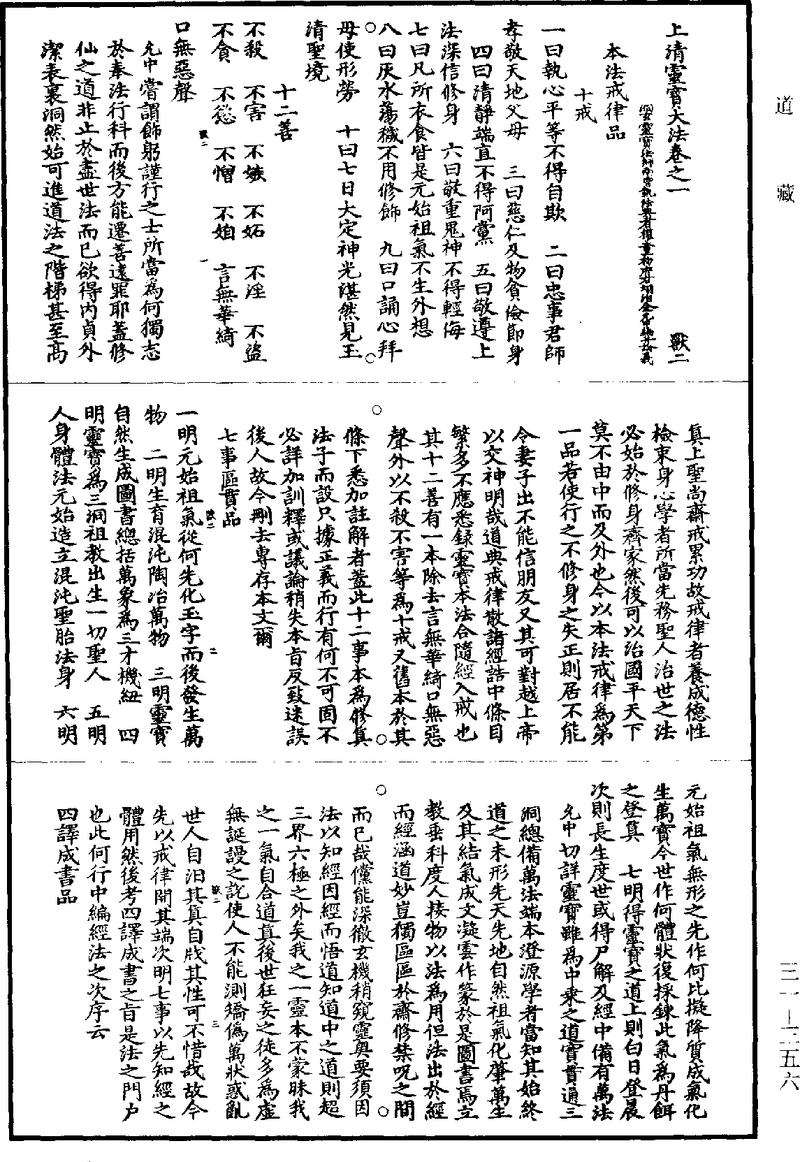 道藏
三一—三五六
上清靈寶大法卷之一
獸二
本法戒律品
十戒
一曰執心平等不得自欺　二曰忠事君師
孝敬天地父母　三曰慈仁及物貪儉節身
四曰清靜端直不得阿黨　五曰敬遵上
法深信修身　六曰敬重鬼神不得輕侮
七曰凡所衣食皆是元始祖氣不生外想
八曰灰水蕩穢不用修飾　九曰口誦心拜
毋使形勞　十曰七日大定神光湛然見玉
清聖境
十二善
不殺　不害　不嫉　不妬　不淫　不盜
不貪　不慾　不憎　不姻　言無華綺
口無惡聲
允中嘗謂飾躬謹行之士所當為何獨志
於奉法行科而後方能遷善遠罪耶蓋修
仙之道非止於盡世法而已欲得內貞外
潔表裏洞然始可進道法之階梯甚至高
真上聖尚齋戒累功故戒律者養成德性
檢束身心學者所當先務聖人治世之法
必始於修身齊家然後可以治國平天下
莫不由中而及外也今以本法戒律為第
一品若使行之不修身之失正則居不能
令妻子出不能信朋友又其可對越上帝
以交神明哉道典戒律散諸經誥中條目
繁多不應悉錄靈寶本法合隨經入戒也
其十二善有一本除去言無華綺口無惡
聲外以不殺不害等為十戒又舊本於其
條下悉加註解者蓋此十二事本為修真
法子而設只據正義而行有何不可固不
必詳加訓釋或議論稍失本旨反致迷誤
後人故今刪去專存本文爾
七事區實品
一明元始祖氣從何先化玉字而後發生萬
物　二明生育混沌陶冶萬物　三明靈寶
自然生成圖書總括萬象為三才機紐　四
明靈寶為三洞祖教出生一切聖人　五明
人身體法元始造立混沌聖胎法身　六明
元始祖氣無形之先作何比擬降質成氣化
生萬寶今世作何體狀復採鍊此氣為丹餌
之登真　七明得靈寶之道上則白日登晨
次則長生度世或得尸解及經中備有萬法
允中切詳靈寶雖為中乘之道實貫通三
洞總備萬法端本澄源學者當知其始終
道之未形先天先地自然祖氣化肇萬生
及其結氣成文凝雲作篆於是圖書焉立
教垂科度人接物以法為用但法出於經
而經涵道妙豈獨區區於齋修禁呪之間
而已哉儻能深徹玄機稍窺靈奧要須因
法以知經因經而悟道知道中之道則超
三界六極之外矣我之一靈本不蒙昧我
之一氣自合道真後世狂妄之徒多為虛
無誕謾之說使人不能測矯偽萬狀惑亂
世人自汩其真自戕其性可不惜哉故今
先以戒律開其端次明七事以先知經之
體用然後考四譯成書之旨是法之門户
也此何行中編經法之次序云
四譯成書品